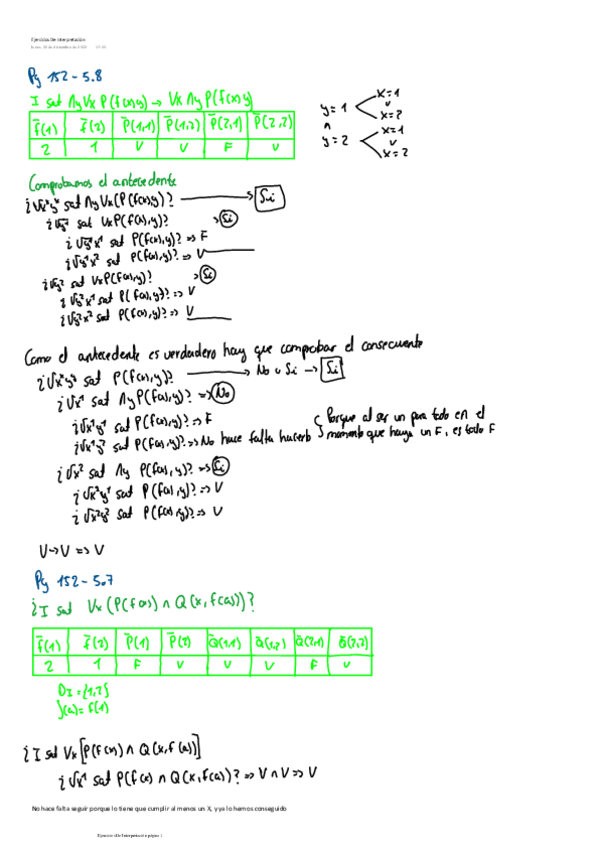 Ejercicios de Interpretación
Pg 152 - 5.8
I sat Λy Vx P(f(x),y) → Vx Λy P(f(x),y)
f̄(1) f̄(2) P̄(1,1) P̄(1,2) P̄(2,1) P̄(2,2)
2 1 V V F V
y=1 x=1
v
x=2
∧
y=2 x=1
v
x=2
Comprobamos el antecedente
sat Λy Vx (P(f(x),y)? → Si
sat Vx P(f(x),y)? → Si
sat P(f(x),y)? => F
sat P(f(x),y)? => V
sat Vx P(f(x),y)? → Si
sat P(f(x),y)? => V
sat P(f(x),y)? => V
Como el antecedente es verdadero hay que comprobar el consecuente
sat P(f(x),y)? → No o Si → Si
sat Λy P(f(x),y)? => No
sat P(f(x),y)? => F
sat P(f(x),y)? => No hace falta hacerlo { Porque al ser un para todo en el
momento que haya un F, es todo F
sat Λy P(f(x),y)? => Si
sat P(f(x),y)? => V
sat P(f(x),y)? => V
V → V => V
Pg 152 - 5.7
¿I sat Vx (P(f(x)) ∧ Q(x, f(a)))?
f̄(1) f̄(2) P̄(1) P̄(2) Q̄(1,1) Q̄(1,2) Q̄(2,1) Q̄(2,2)
2 1 F V V V F V
DI = {1,2}
J(a) = f(1)
¿I sat Vx [P(f(x)) ∧ Q(x, f(a))]
sat P(f(x) ∧ Q(x, f(a))? => V ∧ V => V
No hace falta seguir porque lo tiene que cumplir al menos un X, y ya lo hemos conseguido
Ejercicios de Interpretación página 1